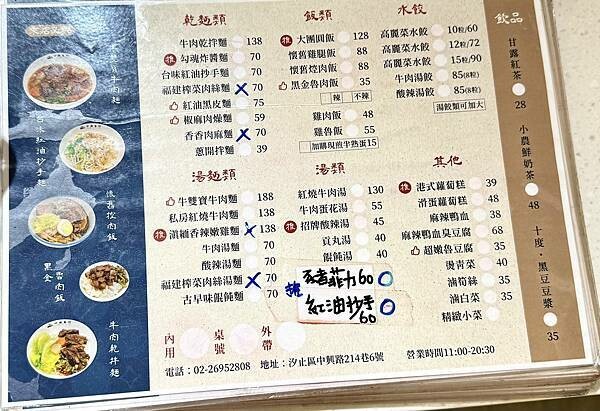 乾麵類
牛肉乾拌麵 138
推 勾魂炸醬麵 70
台味紅油抄手麵 70
福建榨菜肉絲麵 X 70
紅油黑皮麵 75
椒麻肉燥麵 59
香香肉麻麵 X 70
蔥開拌麵 39
飯類
推 大團圓飯 128
懷舊雞腿飯 88
懷舊焢肉飯 88
黑金魯肉飯 35
辣 不辣
雞肉飯 48
雞魯飯 55
加購現煎半熟蛋15
水餃
高麗菜水餃 10粒/60
高麗菜水餃 12粒/72
高麗菜水餃 15粒/90
牛肉湯餃 85(8粒)
酸辣湯餃 85(8粒)
湯餃類可加大
飲品
甘露紅茶 28
小農鮮奶茶 48
十度·黑豆豆漿 35
湯麵類
牛雙寶牛肉麵 188
私房紅燒牛肉麵 138
推 滇緬香辣嫩雞麵 X 138
牛肉湯麵 70
酸辣湯麵 70
福建榨菜肉絲湯麵 X 70
古早味餛飩麵 70
紅燒牛肉湯 130
牛肉蛋花湯 55
推 招牌酸辣湯 45
貢丸湯 40
餛飩湯 40
其他
推 港式蘿蔔糕 39
滑蛋蘿蔔糕 48
麻辣鴨血 38
麻辣鴨血臭豆腐 68
超嫩魯豆腐 35
燙青菜 40
滷筍絲 40
滷白菜 40
精緻小菜
菲力60
紅油抄手
/60
內用
桌號
外帶
電話:02-26952808 地址:汐止區中興路214巷6號 營業時間11:00-20:30
牛肉麵
台味紅油抄手麵
懷舊焢肉飯
牛肉乾拌麵